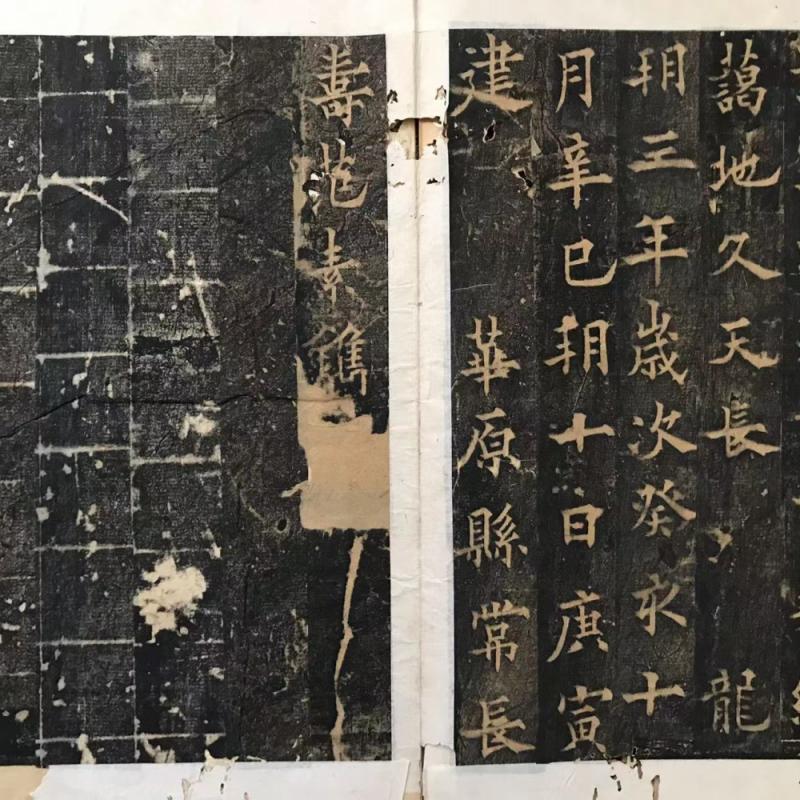 藹地久天長 龍
朔三年歲次癸亥十
月辛巳朔十日庚寅
建 華原縣常長
壽范素鐫